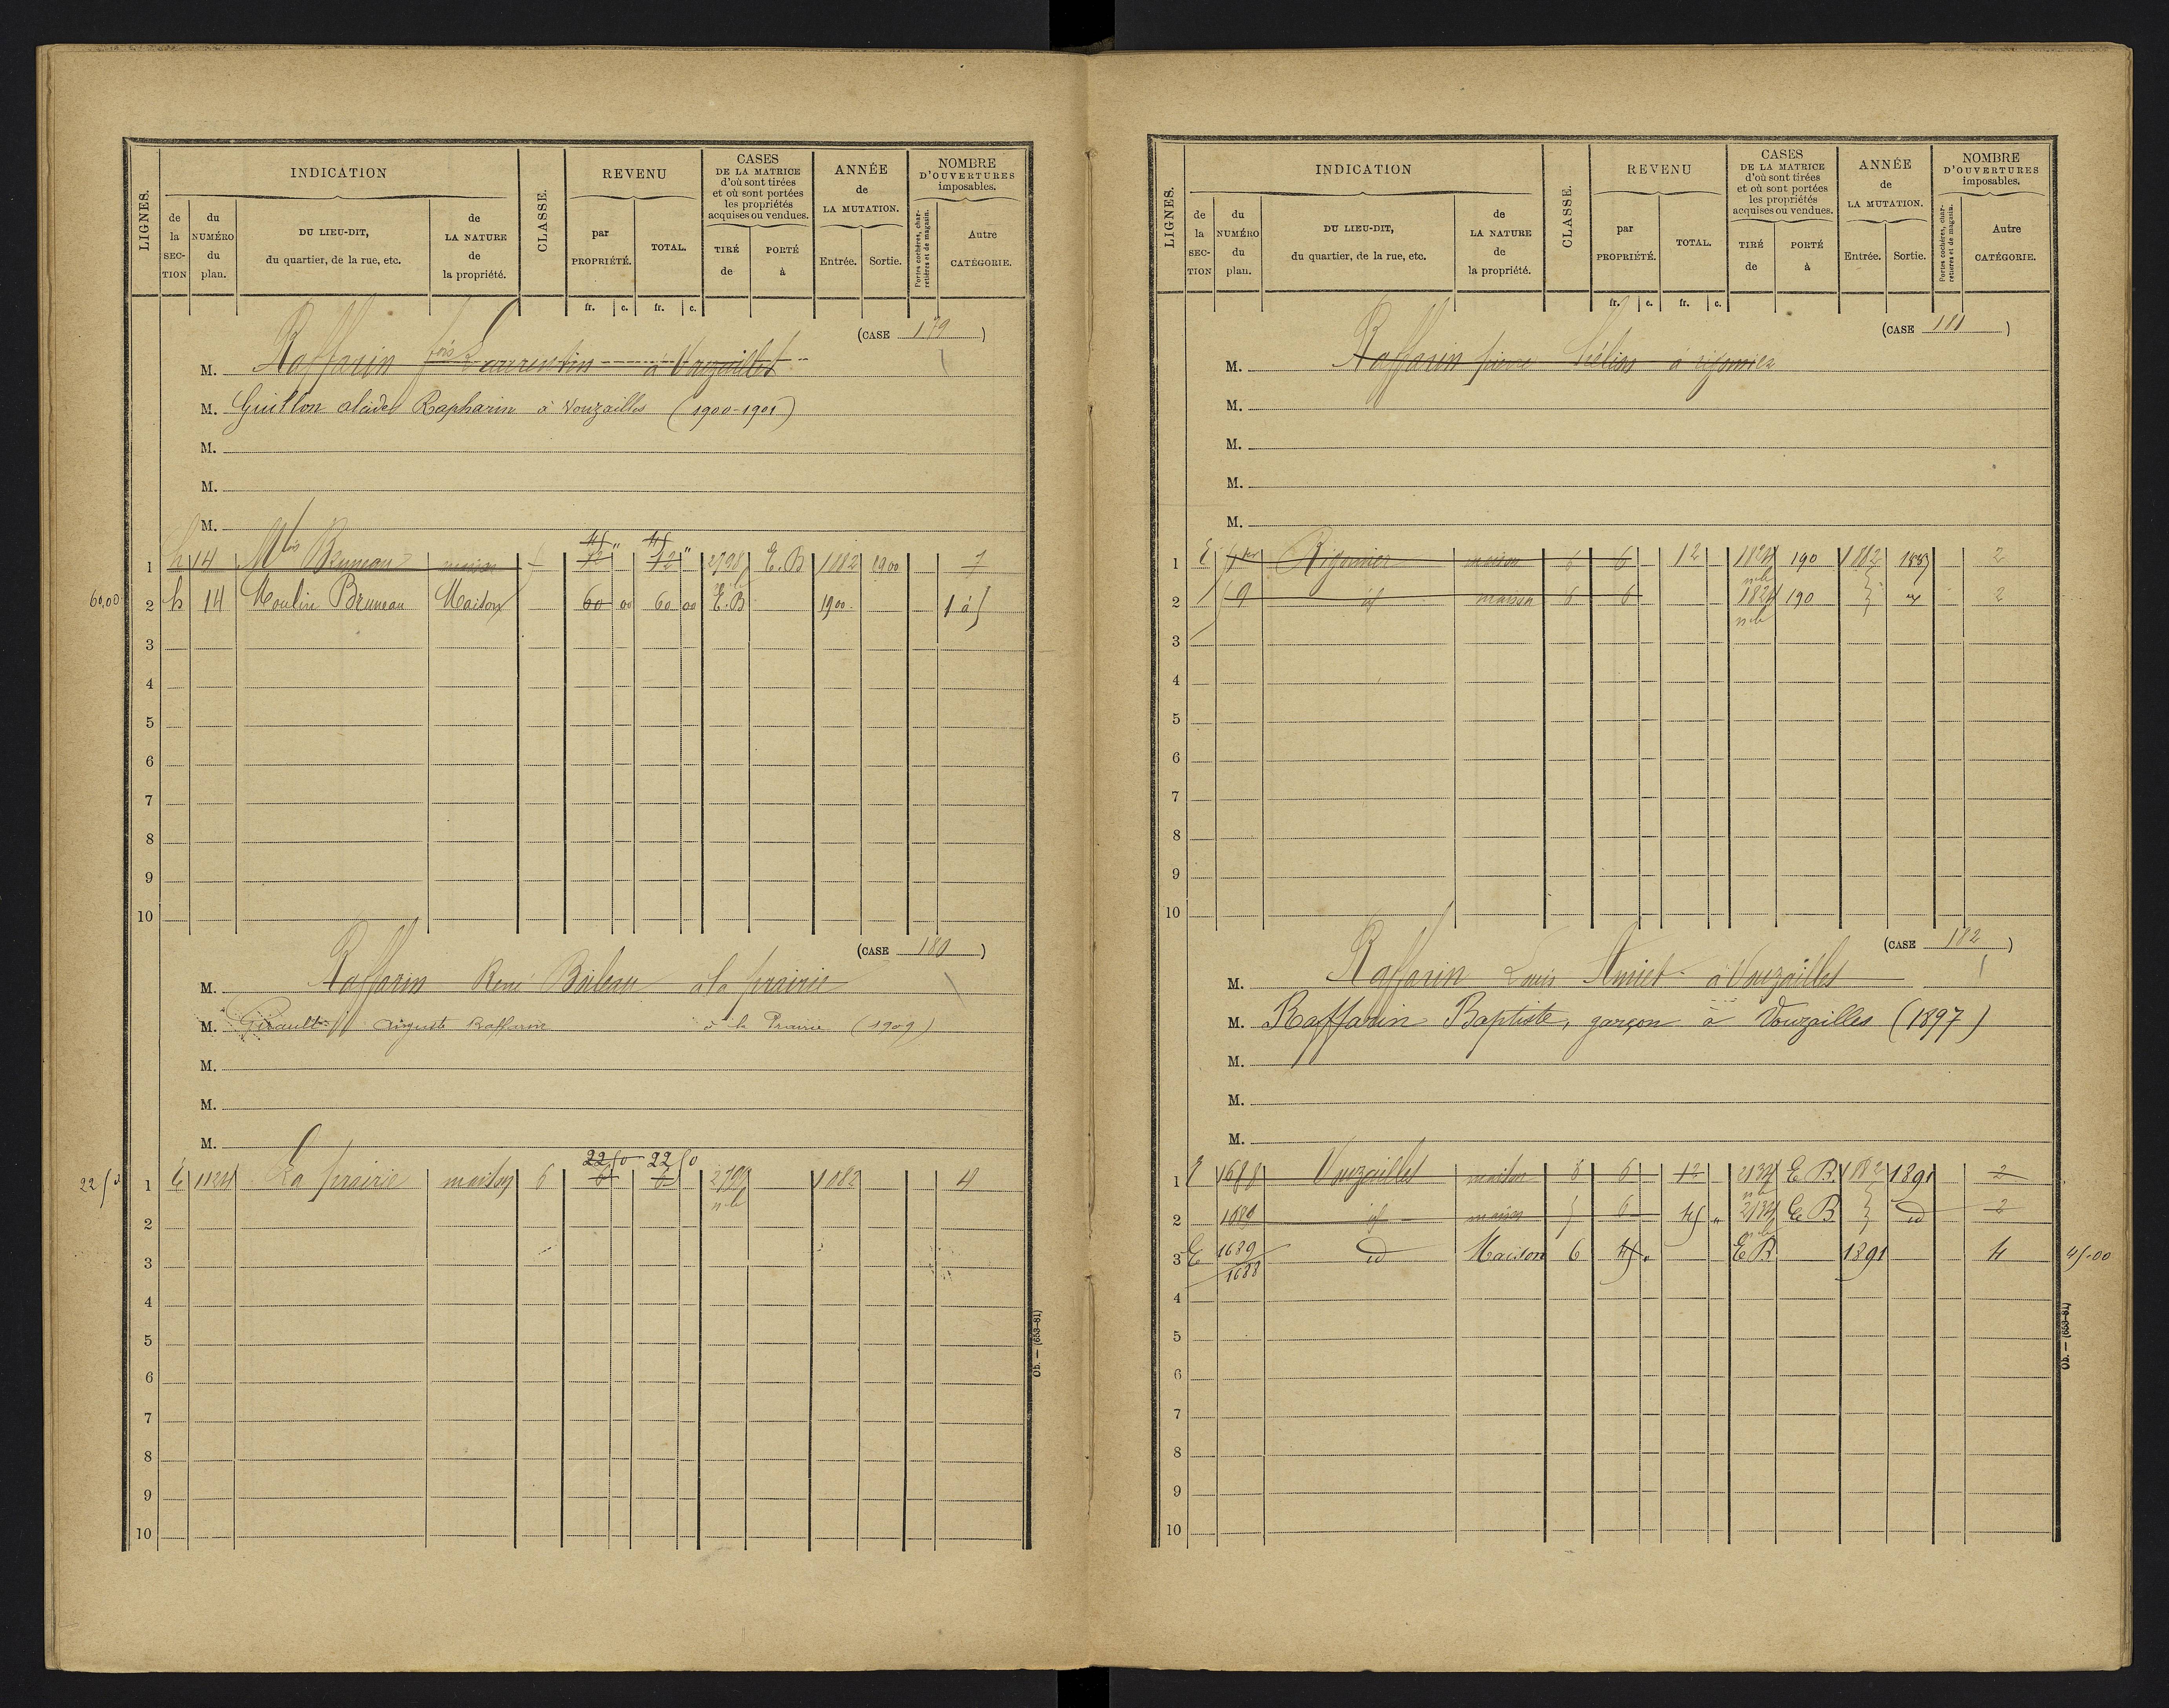 LIGNES.
INDICATION
de la SECTION
du NUMÉRO du plan.
DU LIEU-DIT, du quartier, de la rue, etc.
de LA NATURE de la propriété.
CLASSE.
REVENU
par PROPRIÉTÉ.
TOTAL.
CASES DE LA MATRICE d'où sont tirées et où sont portées les propriétés acquises ou vendues.
TIRÉ de
PORTÉ à
ANNÉE de LA MUTATION.
Entrée.
Sortie.
NOMBRE D'OUVERTURES imposables.
Portes cochères, charretières et de magasin.
Autre CATÉGORIE.
fr. c. fr. c.
(CASE 179)
M. Raffarin fois Laurentin à Vouzailles
M. Guillon alcide Rapharin à Vouzailles (1900-1901)
M.
M.
M.
45 " 45 "
1 h 14 Mlin Bruneau maison 12 12 2798 E.B 1882 1900 7
60,00 2 h 14 Moulin Bruneau Maison 60 00 60 00 E.B 1900 1 à 5
3
4
5
6
7
8
9
10
(CASE 180)
M. Raffarin René Birleau à la prairie
M. Girault auguste Raffarin à la Prairie (1909)
M.
M.
M.
22 50 22 50
22 50 1 E 1124 La prairie maison 6 6 6 1882 4
n.le
2
3
4
5
6
7
8
9
10
Ob. — (653-81)
LIGNES.
INDICATION
de la SECTION
du NUMÉRO du plan.
DU LIEU-DIT, du quartier, de la rue, etc.
de LA NATURE de la propriété.
CLASSE.
REVENU
par PROPRIÉTÉ.
TOTAL.
CASES DE LA MATRICE d'où sont tirées et où sont portées les propriétés acquises ou vendues.
TIRÉ de
PORTÉ à
ANNÉE de LA MUTATION.
Entrée.
Sortie.
NOMBRE D'OUVERTURES imposables.
Portes cochères, charretières et de magasin.
Autre CATÉGORIE.
fr. c. fr. c.
(CASE 181)
M. Raffarin pierre à rigomier
M.
M.
M.
M.
1 E Rigomier maison 6 6 12 1824 190 1882 2
n.le
2 9 id maison 6 6 1824 190 2
n.le
3
4
5
6
7
8
9
10
(CASE 182)
M. Raffarin Louis Amiet à Vouzailles
M. Raffarin Baptiste, garçon à Vouzailles (1897)
M.
M.
M.
1 E 1688 Vouzailles maison 6 12 2134 E B. 1882 1891 2
n.le
2 1689 id maison 6 45 " 2134 E B id 2
n.le
3 E 1689 id Maison 6 45 " E B 1891 4 45.00
1688
4
5
6
7
8
9
10
Ob. — (653-81)